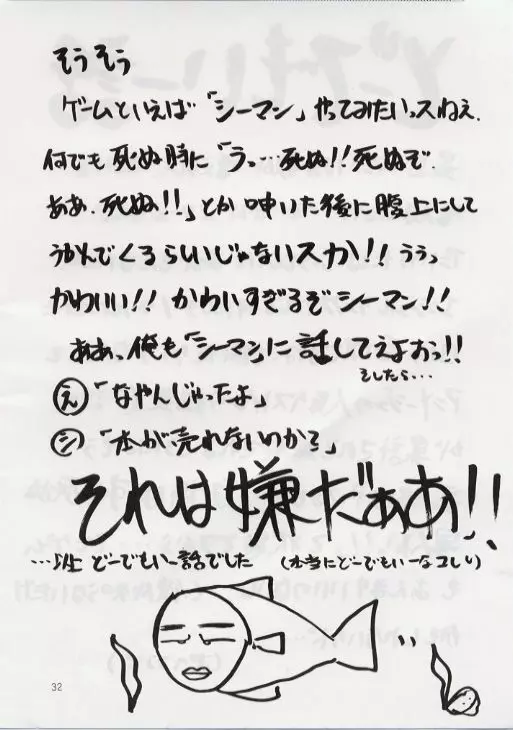 そうそう
ゲームといえば「シーマン」やってみたいっスねえ.
何でも死ぬ時に「うっ…死ぬ!!死ぬぞ
ああ.死ぬ!!」とか呻いた後に腹上にして
うかんでくるらしいじゃないスか!!ううっ
かわいい!!かわいすぎるぞシーマン!!
ああっ俺も「シーマン」に話してえよおっ!!
そしたら…
え「なやんじゃったよ」
シ「本が売れないのか?」
それは嫌だぁあ!!
…以上 どーでもいー話でした (本当にどーでもいーなコレ)
32